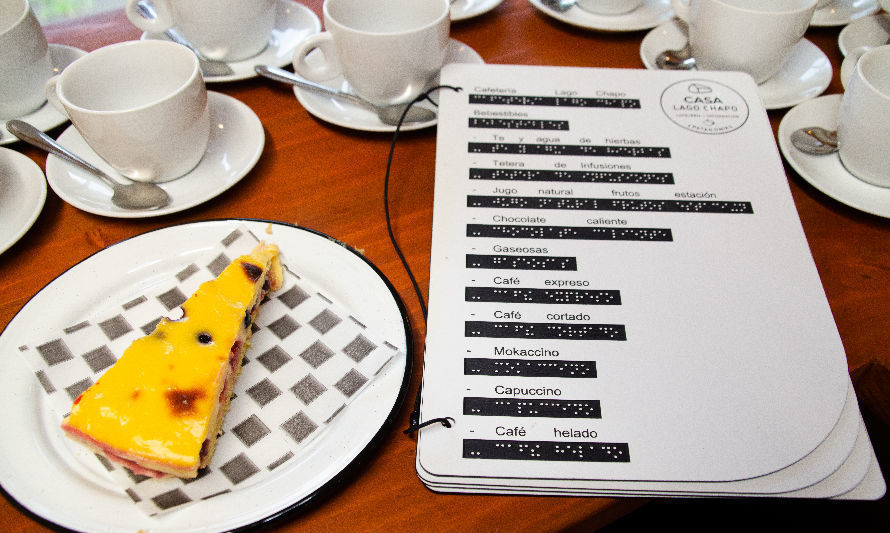 Cafetería Lago Chapo
Bebestibles
- Te y agua de hierbas
- Tetera de Infusiones
- Jugo natural frutos estación
- Chocolate caliente
- Gaseosas
- Café expreso
- Café cortado
- Mokaccino
- Capuccino
- Café helado
CASA
LAGO CHAPO